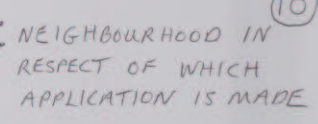 10
NEIGHBOURHOOD IN
RESPECT OF WHICH
APPLICATION IS MADE